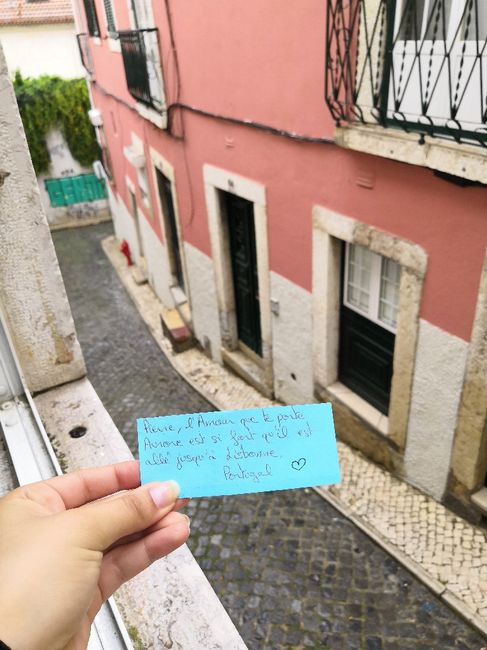 Pierre, l'Amour que te porte
Aurore est si fort qu'il est
allé jusqu'à Lisbonne,
Portugal ♡